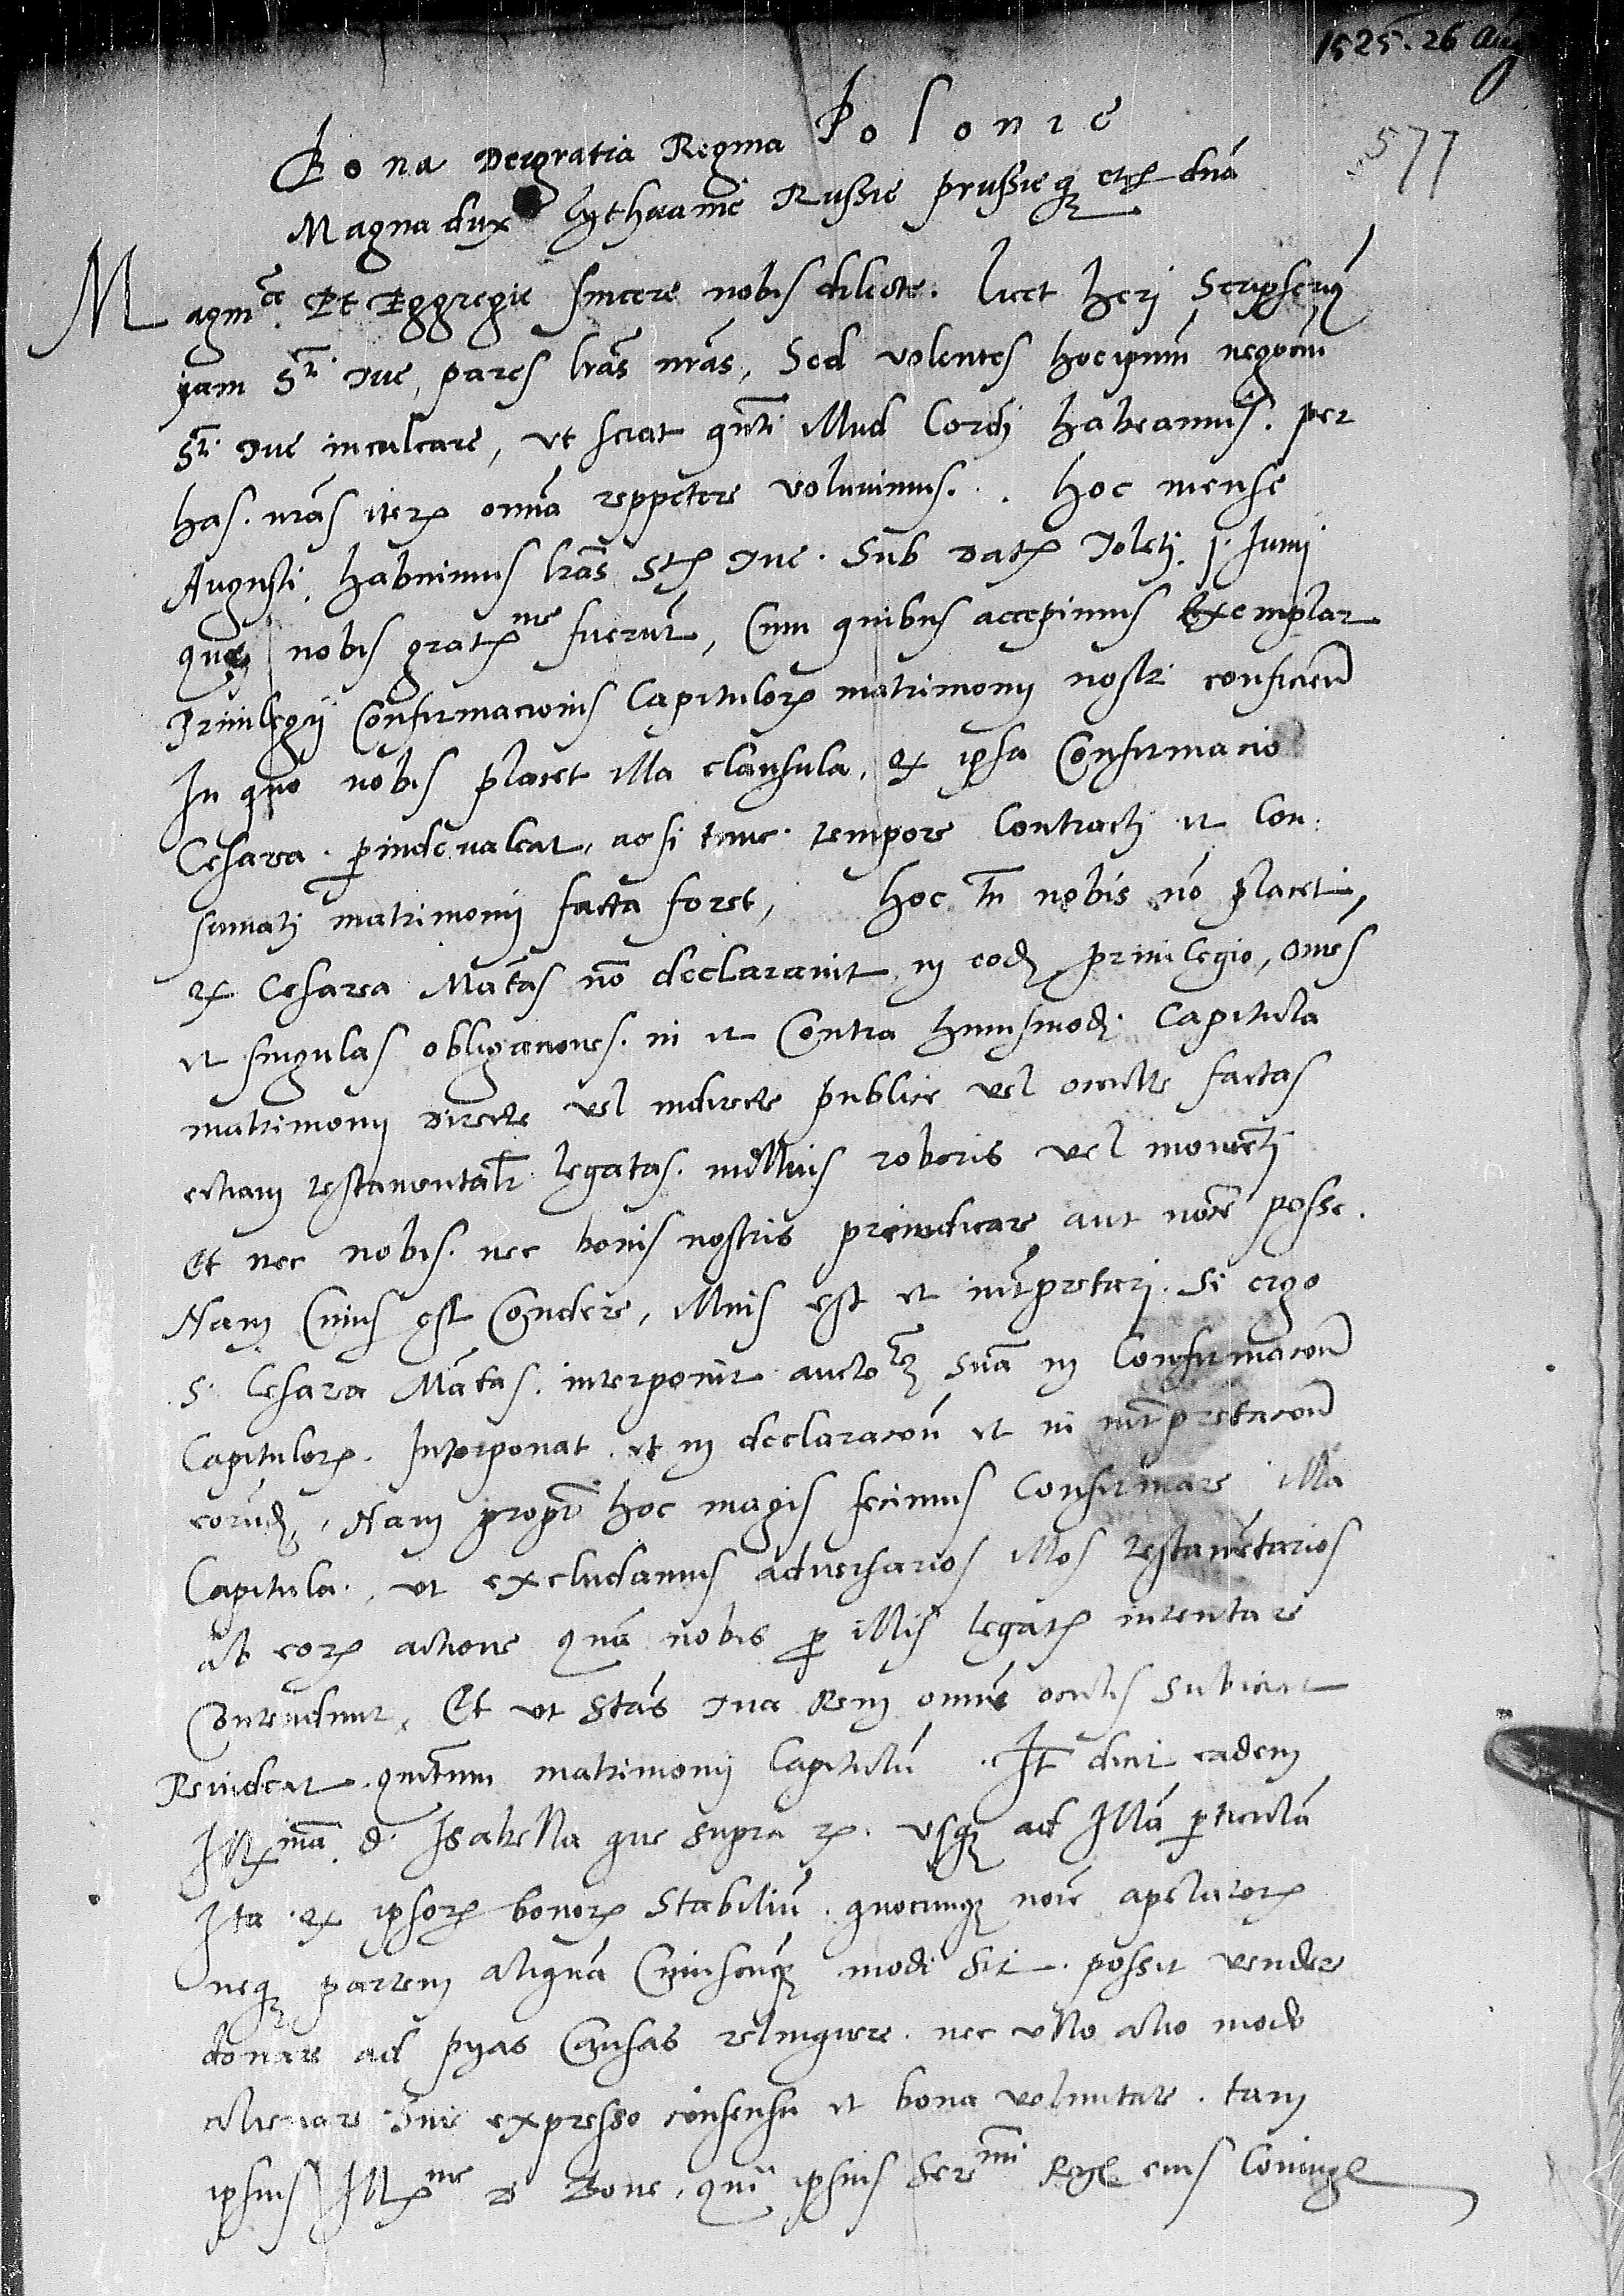 1525. 26 Aug
577
Bona Dei gratia Regina Polonie
Magna dux Lythuanie Russie prussieq3 etc dnā
Magnce Et Eggregie sincere nobis dilecte. licet heri scripserim9
jam Sti. Tue, pares lrās nrās, Sed volentes hoc ipsum negociū
Sti. Tue inculcare, ut sciat quāti illud Cordi habeamus. per
has. nrās iterum omnia reppetere voluimus. . Hoc mense
Augusti, habuimus lrās Stis Tue. Sub dat. Toleti. j. Junij
que nobis gratme fuerūt, Cum quibus accepimus Exemplar
Priuilegij Confirmacionis Capitulorum matrimonij nostri conficiend
In quo nobis placet illa clausula, qd ipsa Confirmacio
Cesarea. perinde valeat, ac si tunc. tempore Contracti et Con:
sumati matrimonij facta foret, Hoc tn nobis nō placet,
qd Cesarea Mātas nō declarauit in eod, priuilegio, omēs
et singulas obligaciones. in et Contra huiusmodi Capitula
matrimonij directe vel indirecte publice vel occulte factas
etiam testamentalr legatas. nullius roboris vel momēti
Et nec nobis. nec bonis nostris preiudicare aut nocere posse.
Nam Cuius est Condere, illius est et intpretari. Si ergo
S. Cesarea Mātas. interponit auctotem suā in Confirmacōn
Capitulorum. Interponat. et in declaracōn et in intpretacōn
eorūd, Nam propt hoc magis fecimus Confirmare illa
Capitula. ut excludamus aduersarios illos testamētarios
ab eorum actione quā nobis p illis legatis intentare
Contendunt, Et ut Stas Tua Rem omnē oculis subiciat
Reuideat. quintum matrimonij Capitulū. It dicit eadem
Illma. d. Isabella que supra etc. usq3 ad illā particulā
Ita qd ipsorum bonorum Stabiliū. quocunq3 noīe apelatorum
neq3 partem aliquā Cuiuscūq3 modi sit. possit vendere
donare ad pyas Causas relinquere. nec ullo alio modo
alienare sine expresso cōnsensu et bona voluntate. tam
ipsius Illme d Bone. quā ipsius Sermi Regis eius Coniugis